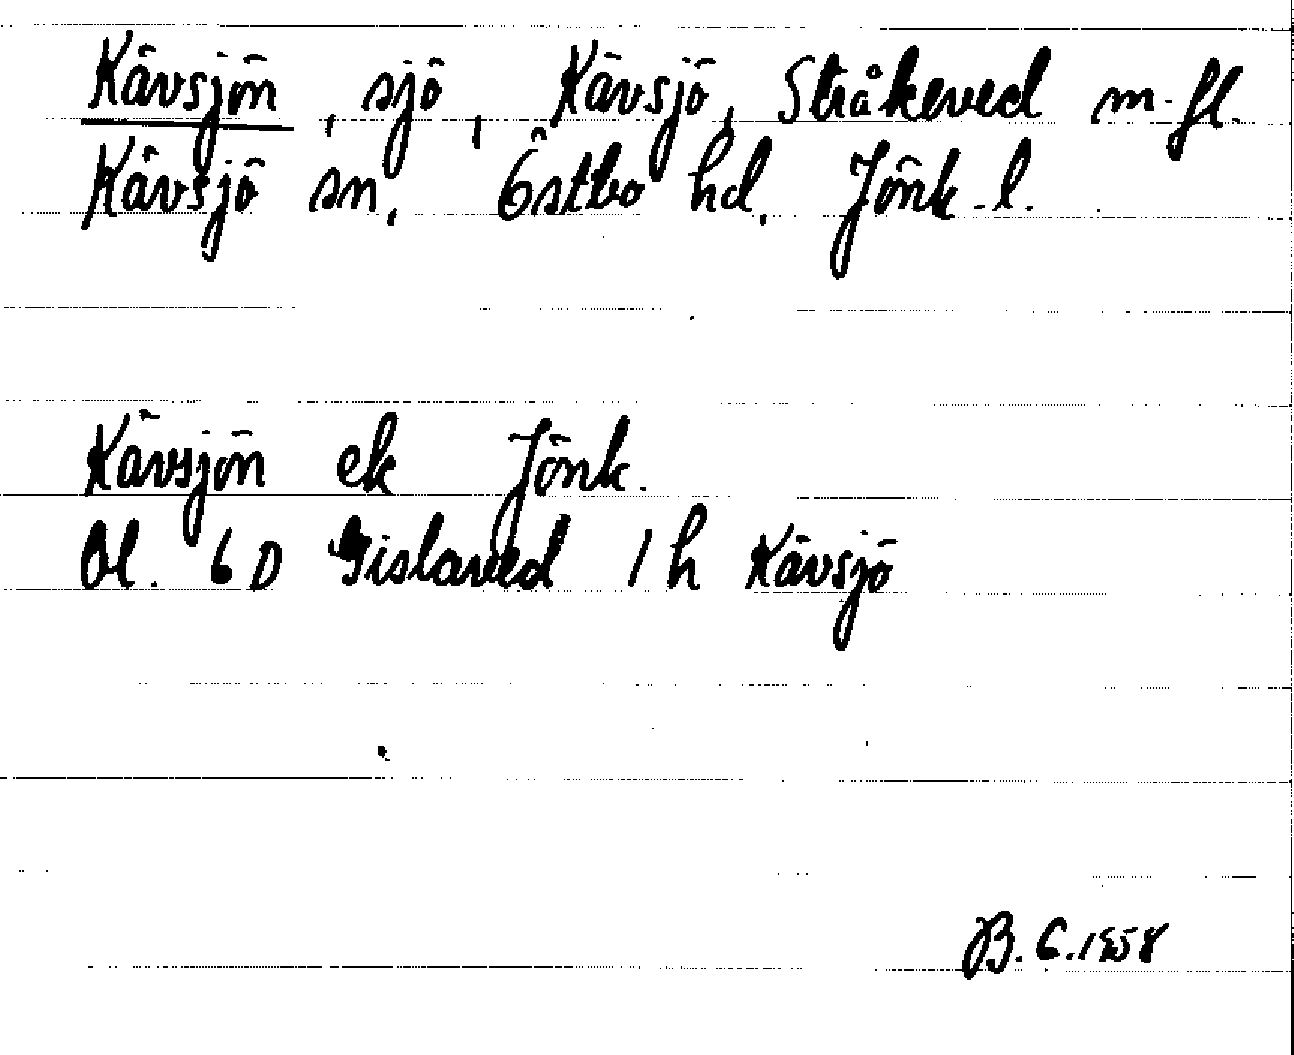 Kävsjön, sjö, Kävsjö, Stråkeved m.fl.
Kävsjö sn, Östbo hd, Jönk.l.
Kävsjön ek Jönk.
Bl. 6D Gislaved 1h Kävsjö
B.C. 1958